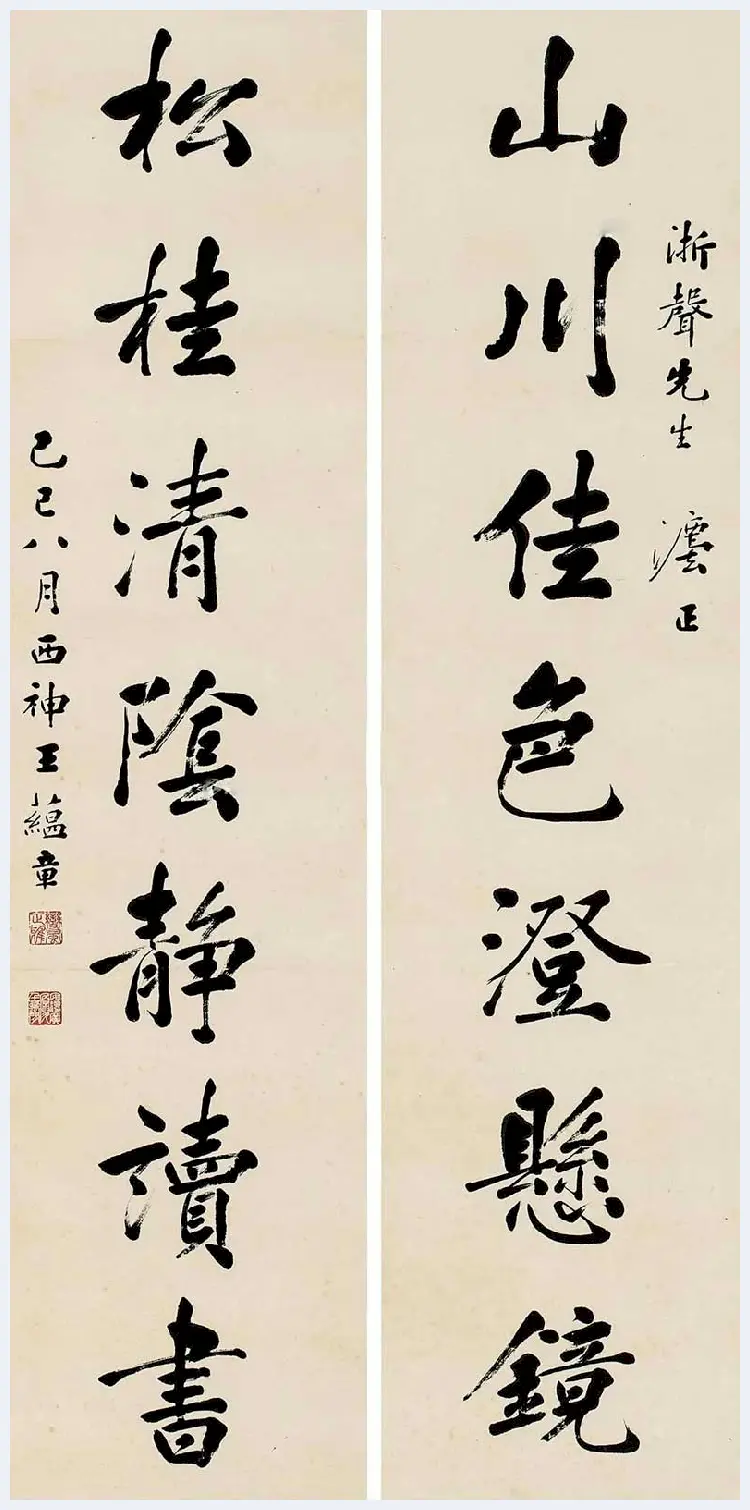 浙聲先生 灋正
山川佳色澄懸鏡
松桂清陰靜讀書
己巳八月西神王藴章